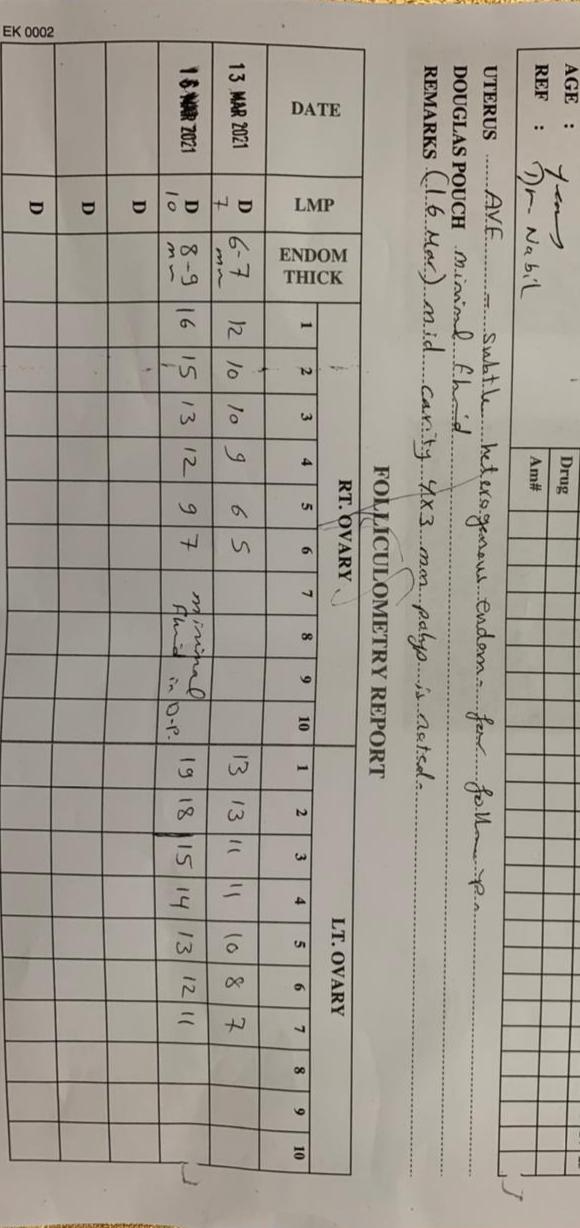 AGE : years
REF : Dr. Nabil
Drug
Am#
UTERUS AVF - subtle heterogenous endom. for follow up.
DOUGLAS POUCH minimal fluid
REMARKS (16 Mar) mid cavity 4x3 mm polyp is noted.
FOLLICULOMETRY REPORT
DATE LMP ENDOM THICK RT. OVARY LT. OVARY
1 2 3 4 5 6 7 8 9 10 1 2 3 4 5 6 7 8 9 10
13 MAR 2021 D 7 6-7 mm 12 10 10 9 6 5 13 13 11 11 10 8 7
16 MAR 2021 D 10 8-9 mm 16 15 13 12 9 7 minimal fluid in D.P. 19 18 15 14 13 12 11
D
D
D
EK 0002